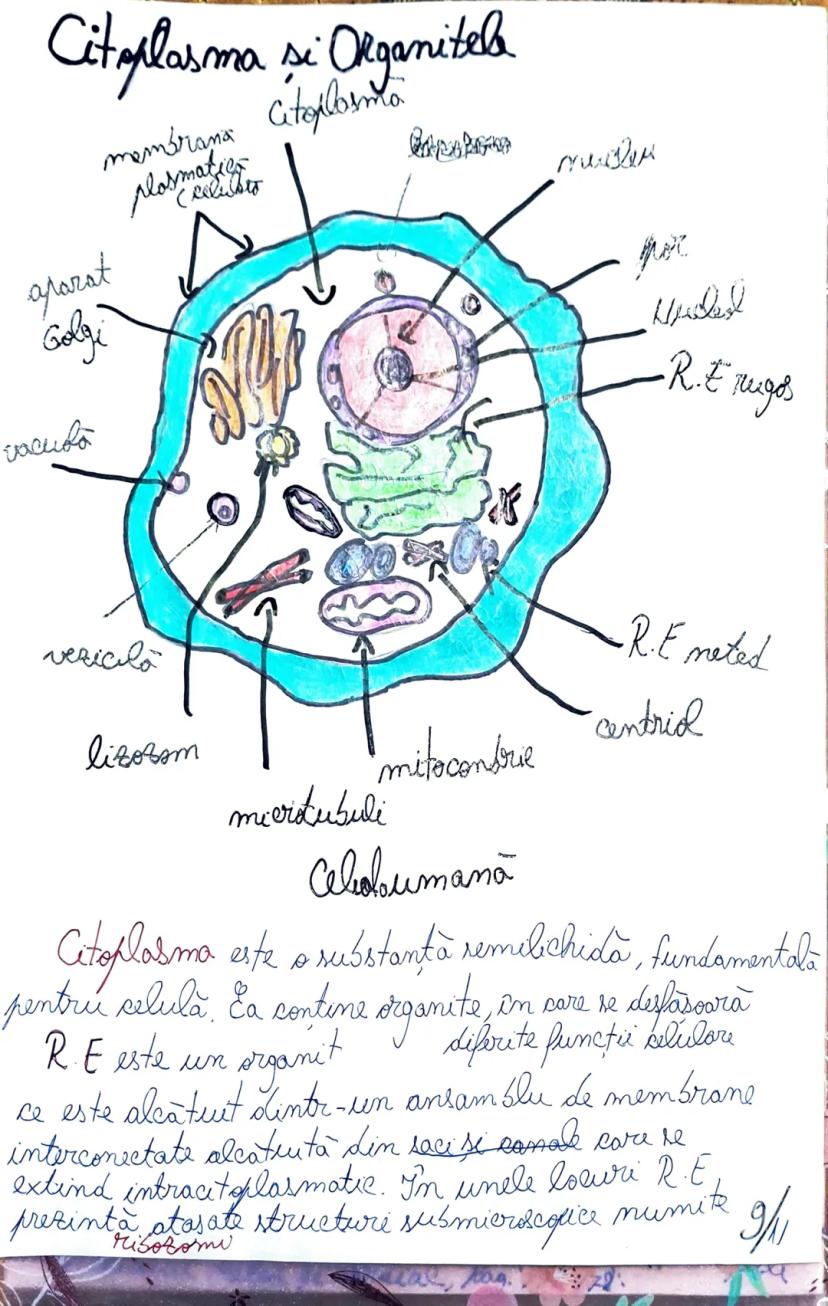 Citoplasma și Organitele
Citoplasmă
membrana
plasmatică
nucleu
aparat
Golgi
por
R.E rugos
vacuolă
veziculă
R.E neted
lizozom
centriol
mitocondrie
microtubuli
Celula umană
Citoplasma este o substanță semilichidă, fundamentală
pentru celulă. Ea conține organite, în care se desfășoară
diferite funcții celulare
R.E este un organit
ce este alcătuit dintr-un ansamblu de membrane
interconectate alcătuită din saci și canale care se
extind intracitoplasmatic. În unele locuri R.E
prezintă atașate structuri submicroscopice numite
ribozomi
9/11